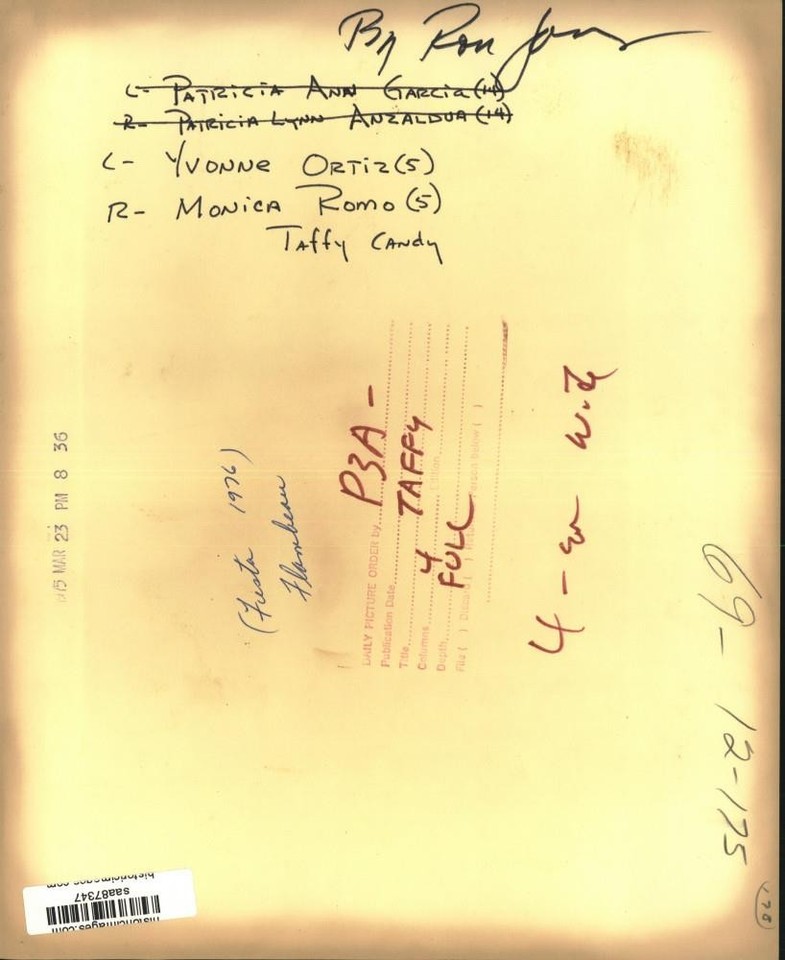 By Ron
L- Patricia Ann Garcia (14)
R- Patricia Lynn Anzaldua (14)
L- Yvonne Ortiz (5)
R- Monica Romo (5)
Taffy Candy
MAR 23 PM 8 36
(Fiesta 1976)
Flambeau
P3A -
TAFFY
4
FULL
DAILY PICTURE ORDER by
Publication Date
Title
Columns
Depth
File ( )
4 -
69- 12-175
historicimages.com
saa87347
historicimages.com